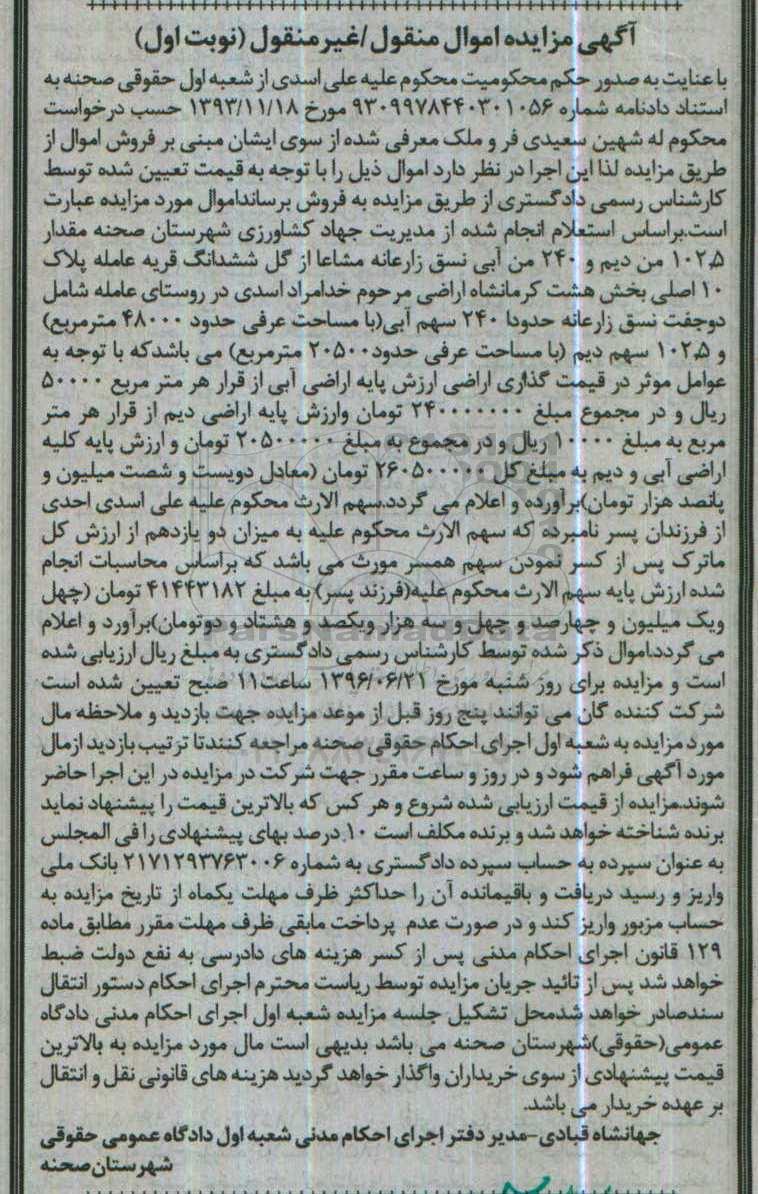 آگهی مزایده اموال منقول/غیرمنقول (نوبت اول)
با عنایت به صدور حکم محکومیت محکوم علیه علی اسدی از شعبه اول حقوقی صحنه به
استناد دادنامه شماره ۹۳۰۹۹۷۸۴۴۰۳۰۱۰۵۶ مورخ ۱۳۹۳/۱۱/۱۸ حسب درخواست
محکوم له شهین سعیدی فر و ملک معرفی شده از سوی ایشان مبنی بر فروش اموال از
طریق مزایده لذا این اجرا در نظر دارد اموال ذیل را با توجه به قیمت تعیین شده توسط
کارشناس رسمی دادگستری از طریق مزایده به فروش برسانداموال مورد مزایده عبارت
است.براساس استعلام انجام شده از مدیریت جهاد کشاورزی شهرستان صحنه مقدار
۱۰۲٫۵ من دیم و ۲۴۰ من آبی نسق زارعانه مشاعا از گل ششدانگ قریه عامله پلاک
۱۰ اصلی بخش هشت کرمانشاه اراضی مرحوم خدامراد اسدی در روستای عامله شامل
دوجفت نسق زارعانه حدودا ۲۴۰ سهم آبی(با مساحت عرفی حدود ۴۸۰۰۰ مترمربع)
و ۱۰۲٫۵ سهم دیم (با مساحت عرفی حدود۲۰۵۰۰ مترمربع) می باشدکه با توجه به
عوامل موثر در قیمت گذاری اراضی ارزش پایه اراضی آبی از قرار هر متر مربع ۵۰۰۰۰
ریال و در مجموع مبلغ ۲۴۰۰۰۰۰۰۰ تومان وارزش پایه اراضی دیم از قرار هر متر
مربع به مبلغ ۱۰۰۰۰ ریال و در مجموع به مبلغ ۲۰۵۰۰۰۰۰ تومان و ارزش پایه کلیه
اراضی آبی و دیم به مبلغ کل ۲۶۰۵۰۰۰۰۰ تومان (معادل دویست و شصت میلیون و
پانصد هزار تومان)برآورده و اعلام می گردد.سهم الارث محکوم علیه علی اسدی احدی
از فرزندان پسر نامبرده که سهم الارث محکوم علیه به میزان دو یازدهم از ارزش کل
ماترک پس از کسر نمودن سهم همسر مورث می باشد که براساس محاسبات انجام
شده ارزش پایه سهم الارث محکوم علیه(فرزند پسر) به مبلغ ۴۱۴۴۳۱۸۲ تومان (چهل
ویک میلیون و چهارصد و چهل و سه هزار ویکصد و هشتاد و دوتومان)برآورد و اعلام
می گردد.اموال ذکر شده توسط کارشناس رسمی دادگستری به مبلغ ریال ارزیابی شده
است و مزایده برای روز شنبه مورخ ۱۳۹۶/۰۶/۲۱ ساعت۱۱ صبح تعیین شده است
شرکت کننده گان می توانند پنج روز قبل از موعد مزایده جهت بازدید و ملاحظه مال
مورد مزایده به شعبه اول اجرای احکام حقوقی صحنه مراجعه کنندتا ترتیب بازدید ازمال
مورد آگهی فراهم شود و در روز و ساعت مقرر جهت شرکت در مزایده در این اجرا حاضر
شوند.مزایده از قیمت ارزیابی شده شروع و هر کس که بالاترین قیمت را پیشنهاد نماید
برنده شناخته خواهد شد و برنده مکلف است ۱۰ درصد بهای پیشنهادی را فی المجلس
به عنوان سپرده به حساب سپرده دادگستری به شماره ۲۱۷۱۲۹۳۷۶۳۰۰۶ بانک ملی
واریز و رسید دریافت و باقیمانده آن را حداکثر ظرف مهلت یکماه از تاریخ مزایده به
حساب مزبور واریز کند و در صورت عدم پرداخت مابقی ظرف مهلت مقرر مطابق ماده
۱۲۹ قانون اجرای احکام مدنی پس از کسر هزینه های دادرسی به نفع دولت ضبط
خواهد شد پس از تائید جریان مزایده توسط ریاست محترم اجرای احکام دستور انتقال
سندصادر خواهد شدمحل تشکیل جلسه مزایده شعبه اول اجرای احکام مدنی دادگاه
عمومی(حقوقی)شهرستان صحنه می باشد بدیهی است مال مورد مزایده به بالاترین
قیمت پیشنهادی از سوی خریداران واگذار خواهد گردید هزینه های قانونی نقل و انتقال
بر عهده خریدار می باشد.
جهانشاه قبادی-مدیر دفتر اجرای احکام مدنی شعبه اول دادگاه عمومی حقوقی
شهرستان صحنه